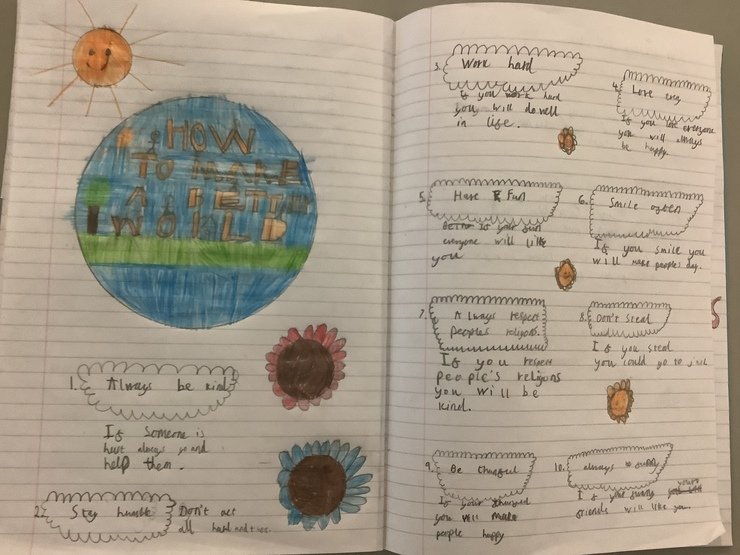 HOW
TO MAKE
A BETTER
WORLD
1. Always be kind
If Someone is
hurt always go and
help them.
2. Stay humble
Don't act
all hard and
3. Work hard
If you work hard
you will do well
in life.
4. Love
If you love everyone
you will always
be happy.
5. Have Fun
is your fun
everyone will like
you
6. Smile often
If you smile you
will make people's day.
7. Always respect
peoples religons.
If you respect
people's religons
you will be
kind.
8. Don't Steal
If you steal
you could go to jail
9. Be
If your
you will make
people happy
10. always
If your funny your
friends will like you.